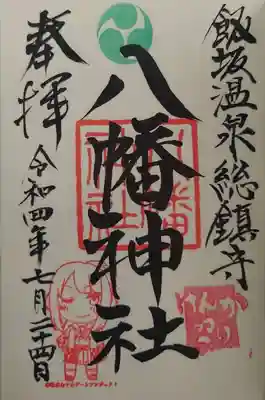 飯坂温泉総鎮守
八幡神社
奉拝
令和四年七月二十四日
けんか